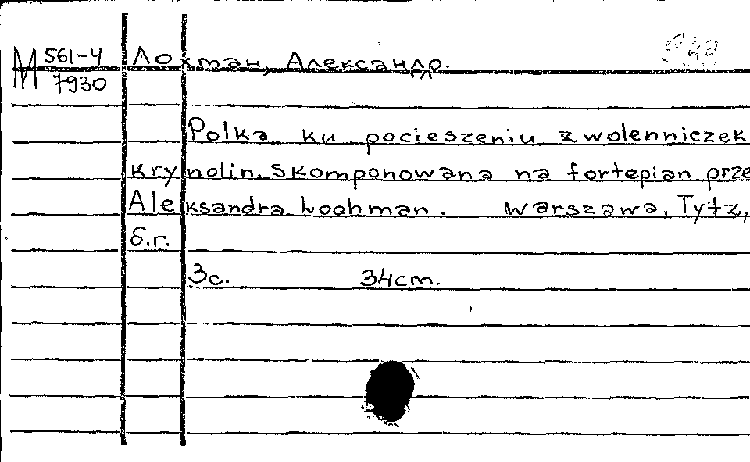 М 561-4
7930
Лохман, Александр.
Polka ku pocieszeniu zwolenniczek
krynolin. Skomponowana na fortepian prze
Aleksandra Loohman. Warszawa, Tytz,
б.г.
3с. 34cm.